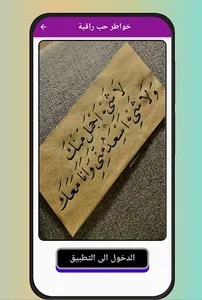 خواطر حب راقية
لا شيء أجمل منك
ولا شيء أسعد مني وأنا معك
الدخول الى التطبيق